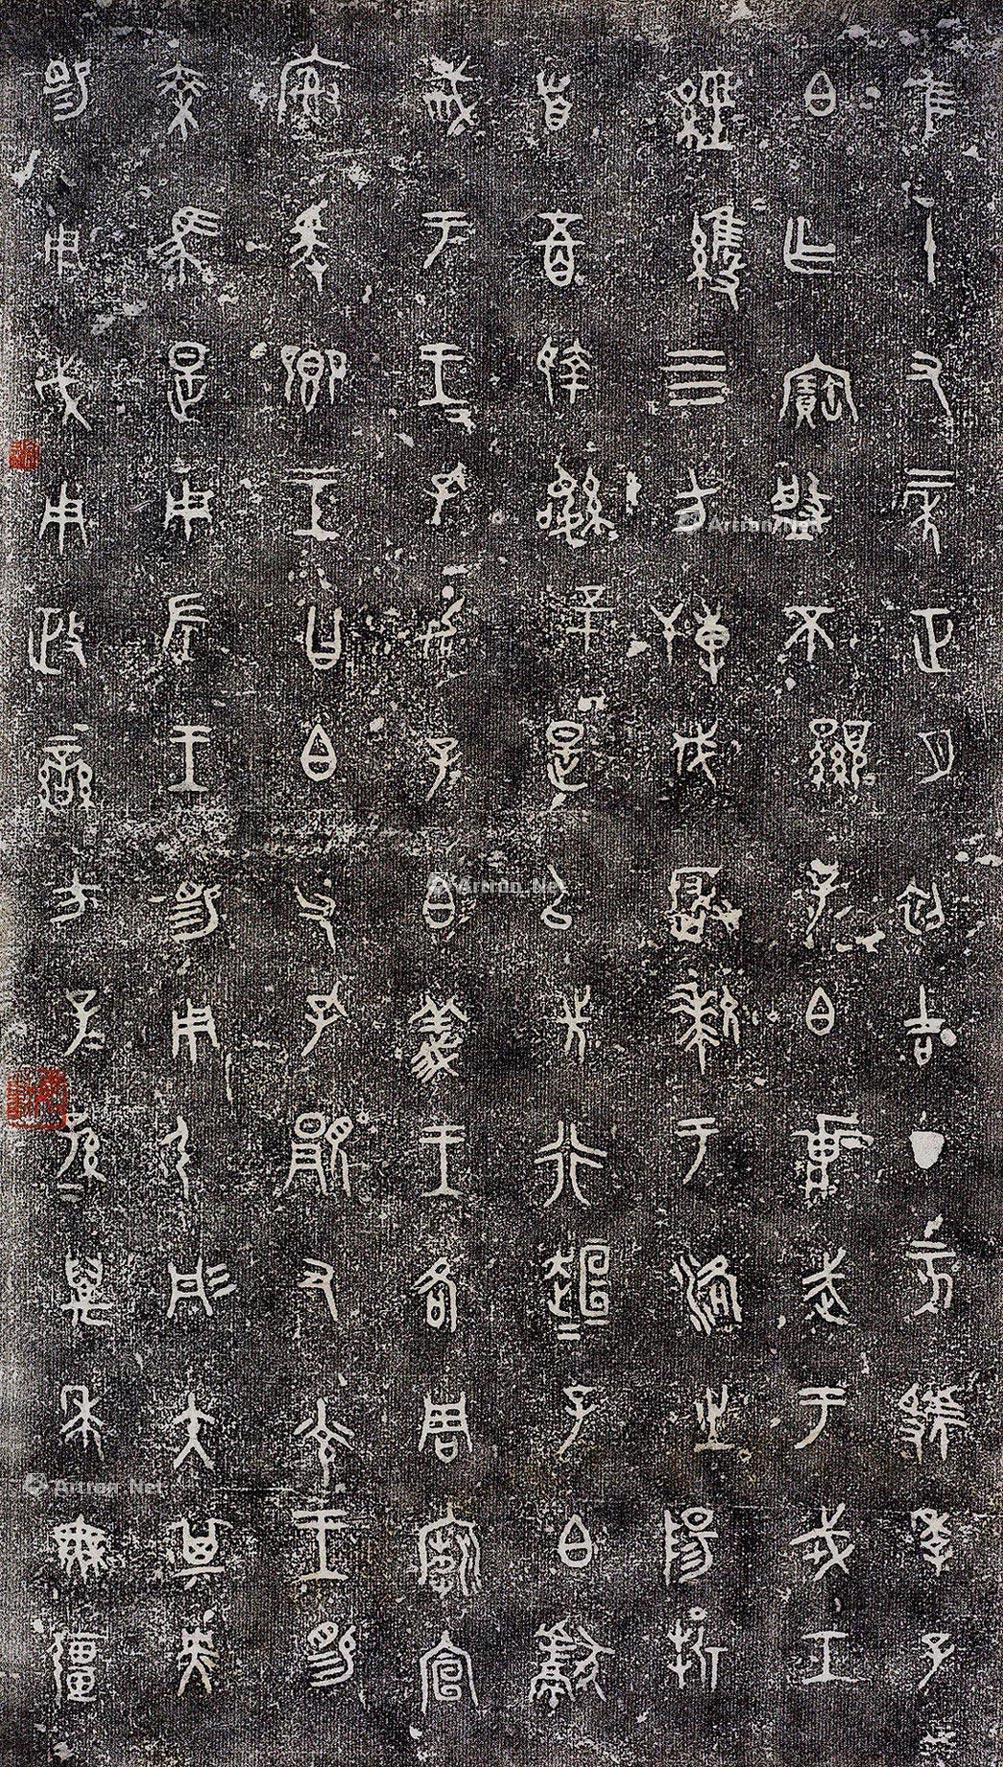 隹十又二年正月初吉丁亥虢季子
白乍寶盤不顯子白壯武于戎工
經維四方搏伐玁狁于洛之陽折
首五百執訊五十是以先行趄=子白獻
馘于王=孔加子白義王各周廟宣
廟爰鄉王曰白父孔顯又光王賜
乘馬是用左王賜用弓彤矢其央
賜用戉用政蠻方子=孫=萬年無疆